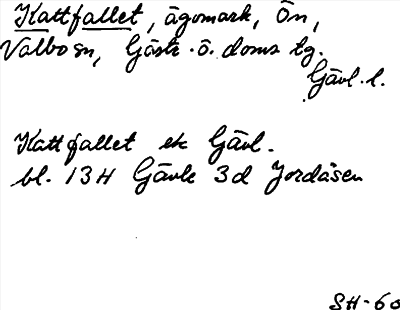 Kattfallet, ägomark, Ön,
Valbo sn, Gästr. ö. doms tg.
Gävl. l.
Kattfallet ek Gävl.
bl. 13H Gävle 3d Jordåsen
SH-60